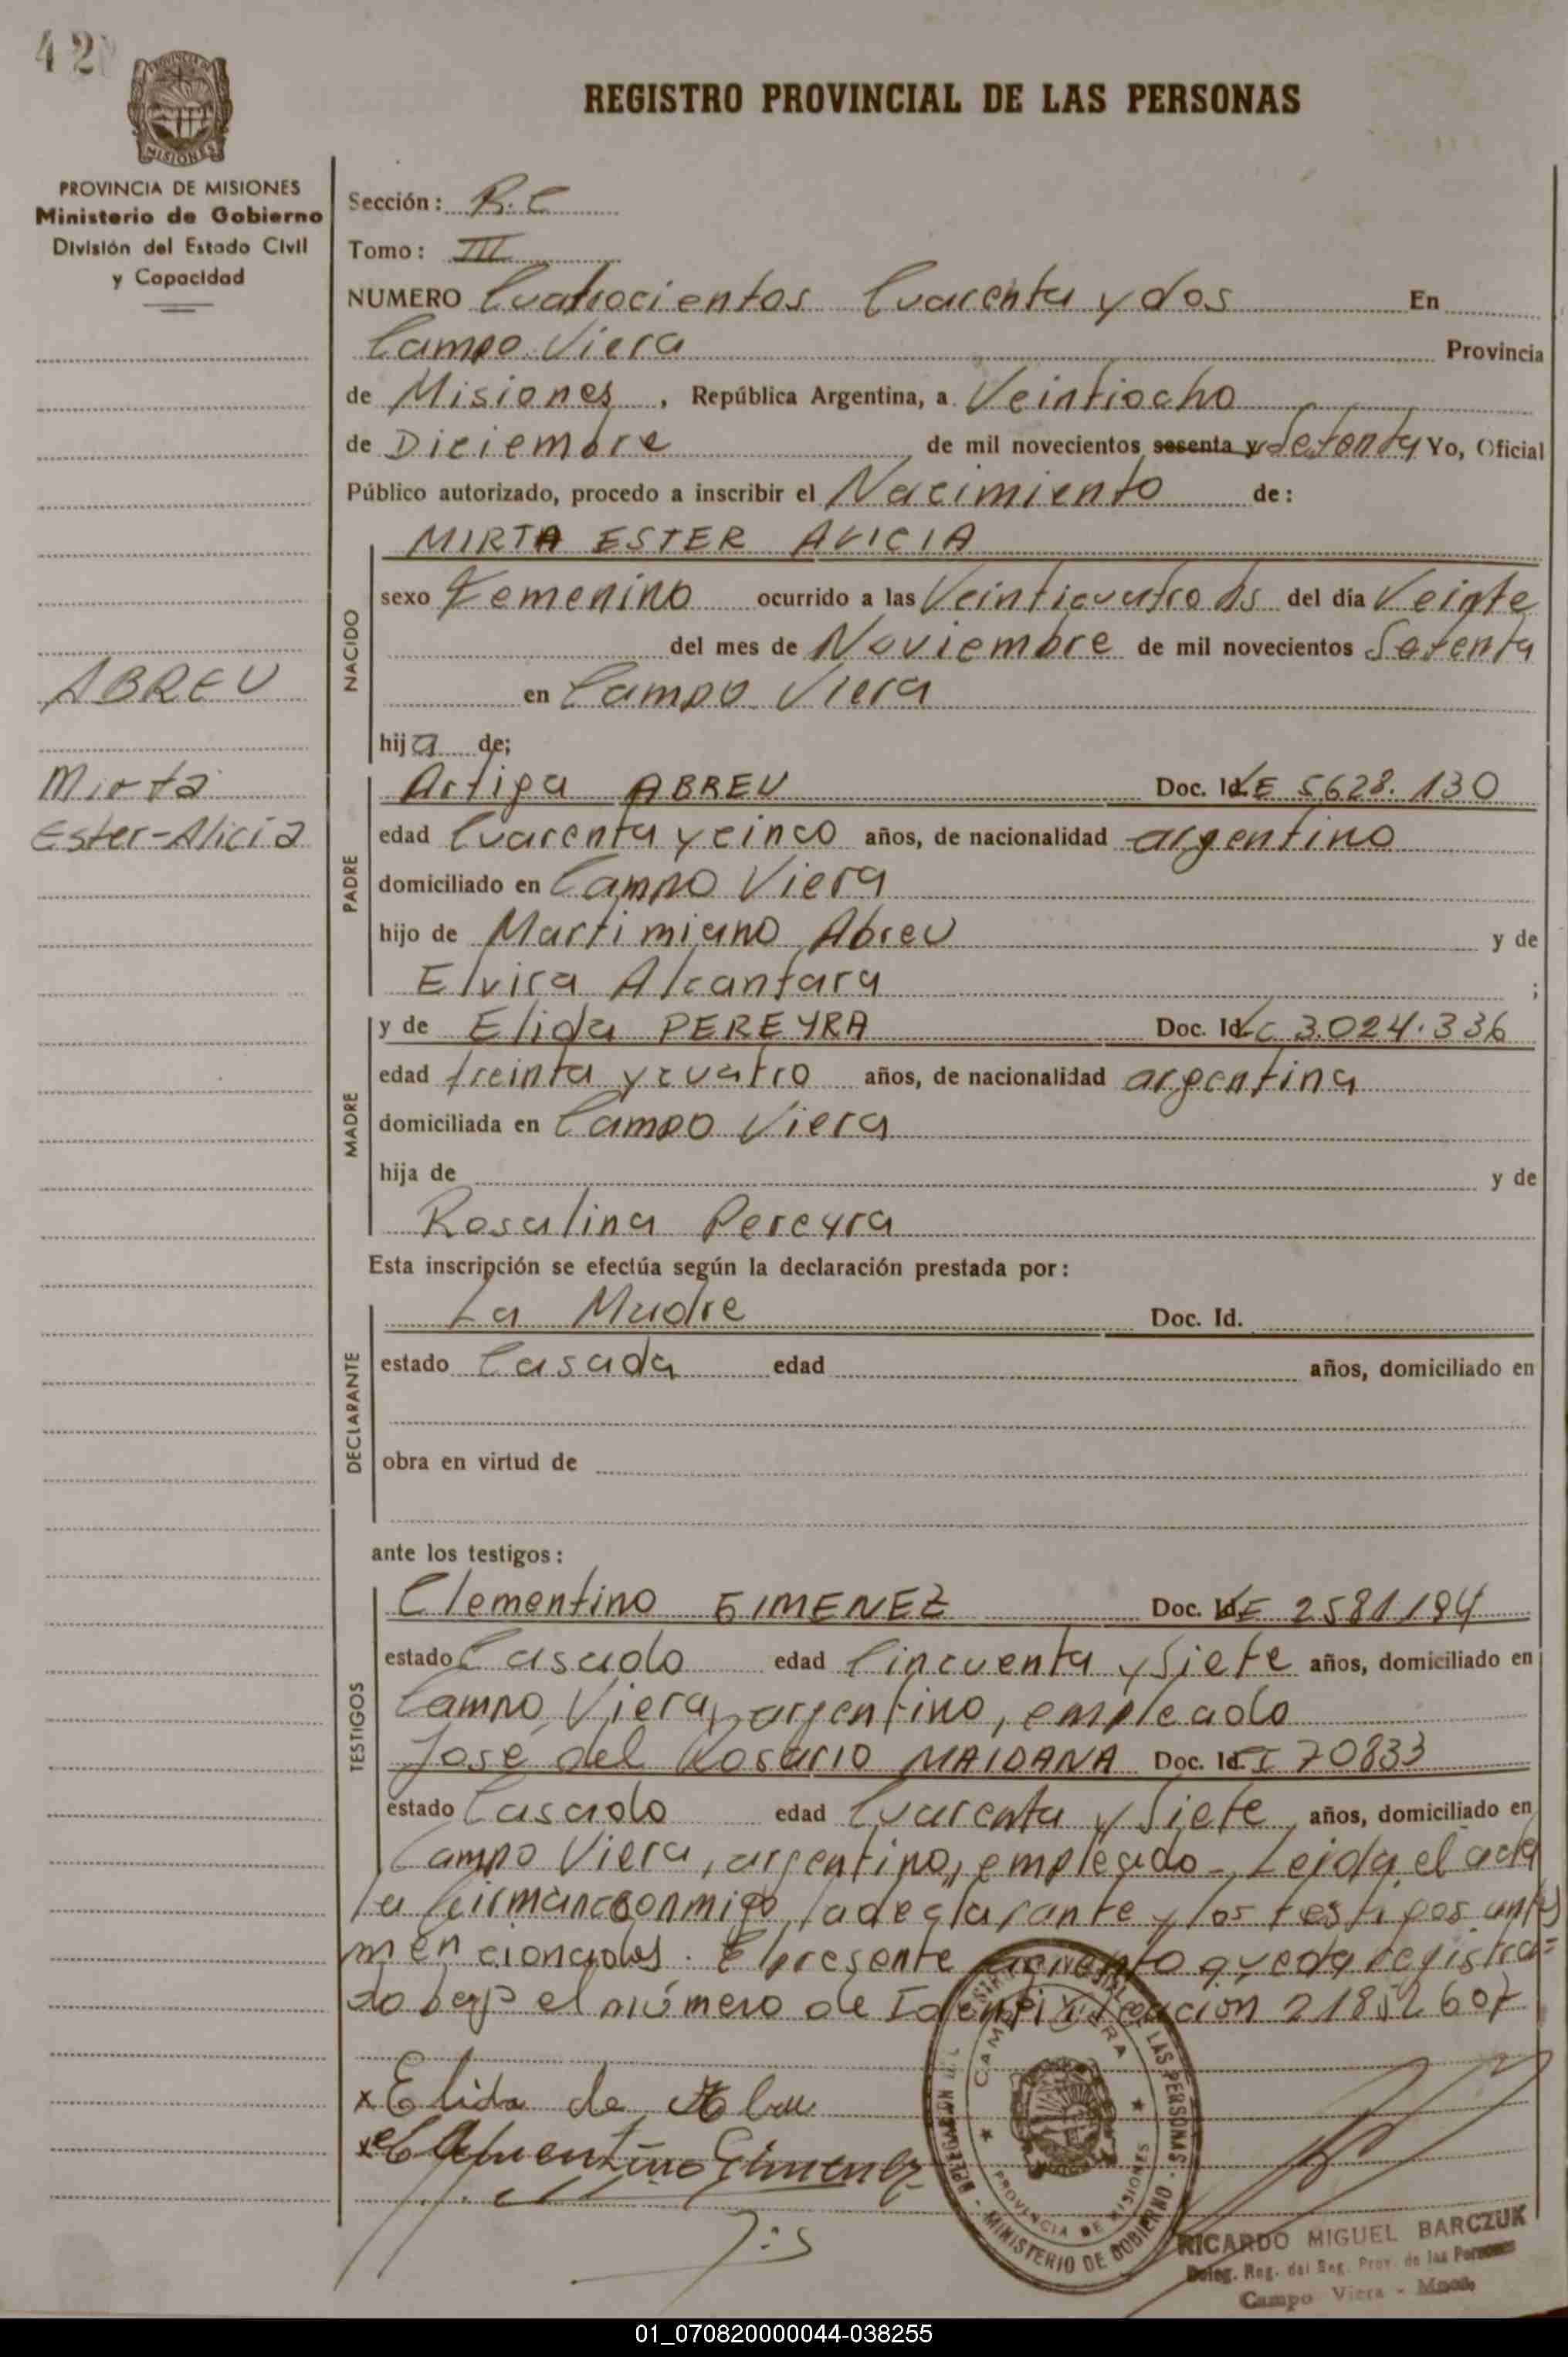 42
MISIONES
PROVINCIA DE MISIONES
Ministerio de Gobierno
División del Estado Civil
y Capacidad
ABREU
Mirta
Ester-Alicia
REGISTRO PROVINCIAL DE LAS PERSONAS
Sección: R.C
Tomo: III
NUMERO Cuatrocientos Cuarenta y dos En
Campo Viera Provincia
de Misiones, República Argentina, a Veintiocho
de Diciembre de mil novecientos sesenta y Setenta Yo, Oficial
Público autorizado, procedo a inscribir el Nacimiento de:
NACIDO
MIRTA ESTER ALICIA
sexo Femenino ocurrido a las Veinticuatro hs del día Veinte
del mes de Noviembre de mil novecientos Setenta
en Campo Viera
hija de;
PADRE
Artiga ABREU Doc. Id. LE 5628.130
edad Cuarenta y cinco años, de nacionalidad argentino
domiciliado en Campo Viera
hijo de Martimiano Abreu y de
Elvira Alcantara ;
MADRE
y de Elida PEREYRA Doc. Id. LC 3.024.336
edad treinta y cuatro años, de nacionalidad argentina
domiciliada en Campo Viera
hija de y de
Rosalina Pereyra
Esta inscripción se efectúa según la declaración prestada por:
DECLARANTE
La Madre Doc. Id.
estado Casada edad años, domiciliado en
obra en virtud de
ante los testigos:
TESTIGOS
Clementino GIMENEZ Doc. Id. LE 2581194
estado Casado edad Cincuenta y Siete años, domiciliado en
Campo Viera, argentino, empleado
José del Rosario MAIDANA Doc. Id. CI 70833
estado Casado edad Cuarenta y Siete años, domiciliado en
Campo Viera, argentino, empleado - Leida el acta
la firman conmigo, la declarante y los testigos antes
mencionados. El presente queda registra=
do bajo el número de Identificacion 21852607
x Elida de Abreu
x Clementino Gimenez
CAMPO VIERA
PROVINCIA DE MISIONES
LAS PERSONAS - MINISTERIO DE GOBIERNO
RICARDO MIGUEL BARCZUK
Deleg. Reg. del Reg. Prov. de las Personas
Campo Viera - Mnes.
01_070820000044-038255